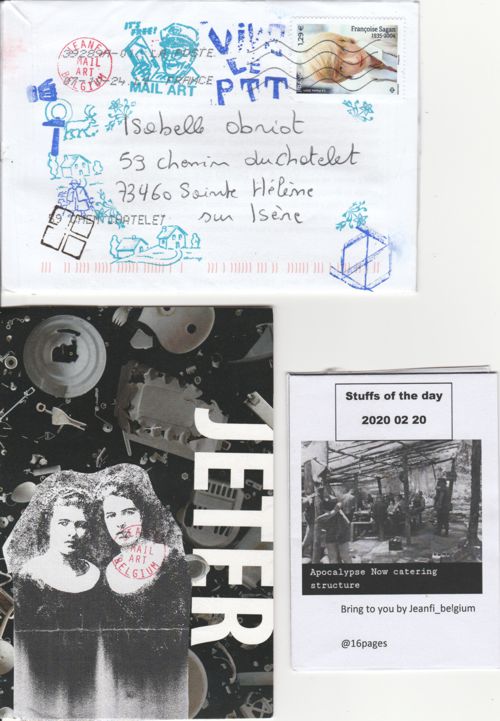 IT'S FREE!
MAIL ART
JEANFI
MAIL
ART
BELGIUM
VIVE
LE
PTT
LA POSTE
FRANCE
Françoise Sagan
1935-2004
1,29 €
Isabelle Obriot
59 chemin du chatelet
73460 Sainte Hélène
sur Isère
JETER
JEANFI
MAIL
ART
BELGIUM
Stuffs of the day
2020 02 20
Apocalypse Now catering
structure
Bring to you by Jeanfi_belgium
@16pages